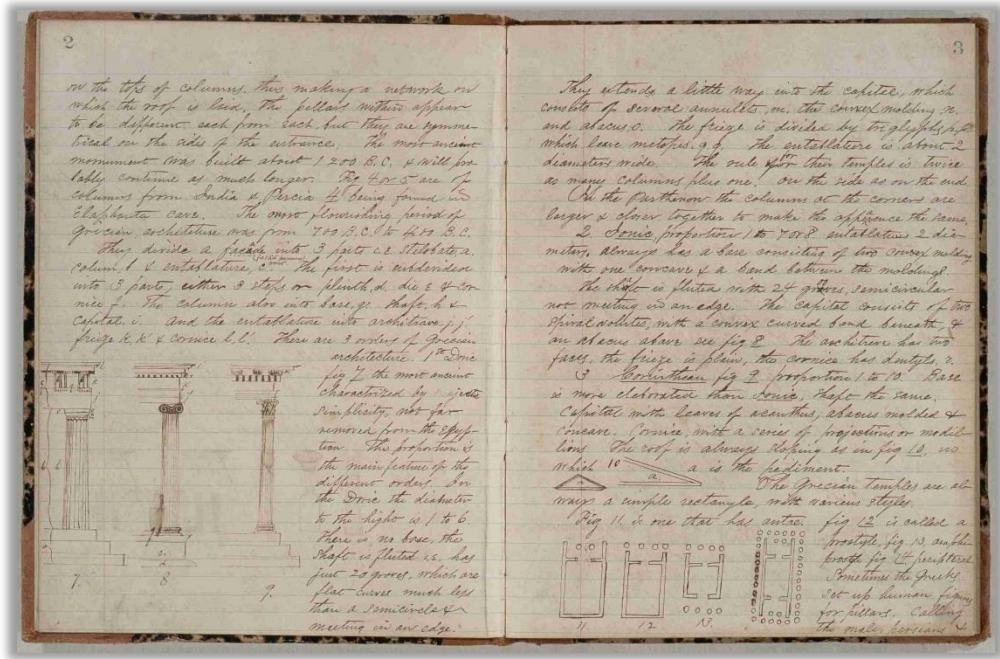 2
on the tops of columns, thus making a network on
which the roof is laid, the pillars within appear
to be different each from each, but they are symme-
trical on the sides of the entrance. The most ancient
monument was built about 1200 B.C. & will pro
bably continue as much longer. Fig 4 or 5 are of
columns from India & Percia 4 being found in
Elaphanta cave. The most flourishing period of
Grecian architeture was from 700 B.C. to 400 B.C.
They divide a facade into 3 parts i.e. Stilobate, a.
colum, b & entablature, c. The first is subdivided
into 3 parts, either 3 steps or plinth, d. die, e & cor
nice f. The column also into base, g. shaft, h &
capital. i. And the entablature into architrave, j, j'.
frige k, k' & cornice l, l'. There are 3 orders of Grecian
architecture. 1st Doric
fig 7 the most ancient
charactorized by majestic
simplicity, not far
removed from the Egyp-
tion. The proportion is
the main feature of the
different orders. In
the Doric the diameter
to the hight is 1 to 6
there is no base, the
shaft is fluted i.e. has
just 20 groves, which are
flat curves much less
than a semicircle &
meeting in an edge.
7.
8
9.
3
They extends a little way into the capital, which
consists of several annulets, m, the convex molding n.
and abacus, o. The frieze is divided by tri glyphs, p, p
which leave metopes. q, q. The entablature is about 2
diameters wide. The rule for their temples is twice
as many columns plus one. on the side as on the end.
In the Parthenon the columns at the corners are
larger & closer together to make the apperence the same.
2 Ionic, proportion 1 to 7 or 8 entablature 2 dia-
meters, always has a base consisting of two convex molding
with one concave & a band between the moldings.
The shaft is fluted with 24 groves, semicircular
not meeting in an edge. The capital consists of two
spiral volutes, with a convex curved band beneath, &
an abacus above see fig 8 The architrave has two
faces, the frieze is plain, the cornice has dentyls, r.
3 Corinthean fig 9 proportion 1 to 10. Base
is more elaborated than Ionic, shaft the same.
Capital with leaves of acanthus, abacus molded &
concave. Cornice, with a series of projections or modil
lions The roof is always sloping as in fig 10, in
which 10 a is the pediment.
a.
The Grecian temples are al
ways a simple rectangle, with various styles.
Fig 11, is one that has antae. fig 12 is called a
prostyle, fig 13, amphi
prostyle fig 14 peripteral
Sometimes the Greeks
set up human figures
for pillars. Calling
the males persians &
11
12
13.